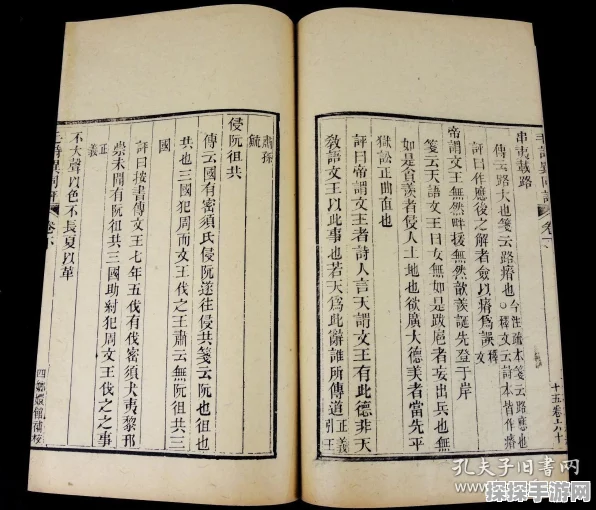 毛詩異同評 卷下
串夷載路
傳云路大也箋云路瘠也今注疏本箋云路應也○釋文云詩本皆作瘠
評曰作應後之解者僉以瘠為誤釋文
帝謂文王無然畔援無然歆羨誕先登于岸
箋云天語文王曰女無如是跋扈者妄出兵也無
如是貪羨者侵人土地也欲廣大德美者當先平
獄訟正曲直也
評曰帝謂文王者詩人言天謂文王有此德非天
教語文王以此事也若天為此辭誰所傳道正義引王
肅孫毓
侵阮徂共
傳云國有密須氏侵阮遂往侵共箋云阮也徂也
共也三國犯周而文王伐之王肅云無阮徂共三
國
評曰按書傳文王七年五伐有伐密須犬夷黎邗
崇未聞有阮徂共三國助紂犯周文王伐之之事
正義
不大聲以色不長夏以革
毛詩異同評 卷下
四 嫏嬛館補校
孔夫子旧书网
探探手游网